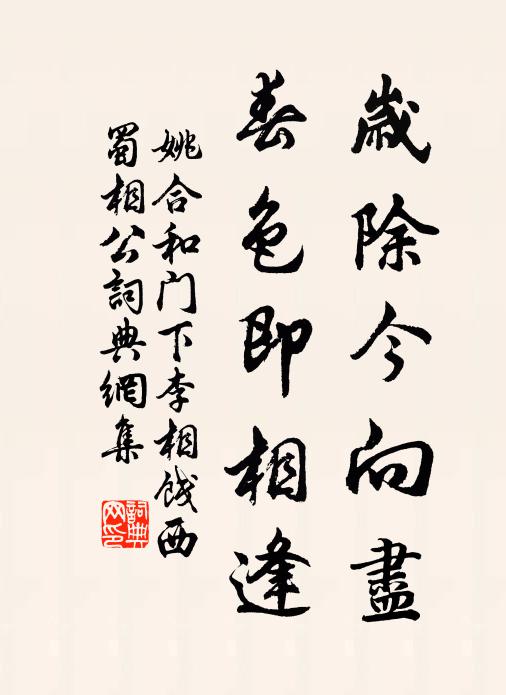 歲除今向盡
春色即相逢
姚合和门下李相饯西
蜀相公詞典網集
詞典
网印